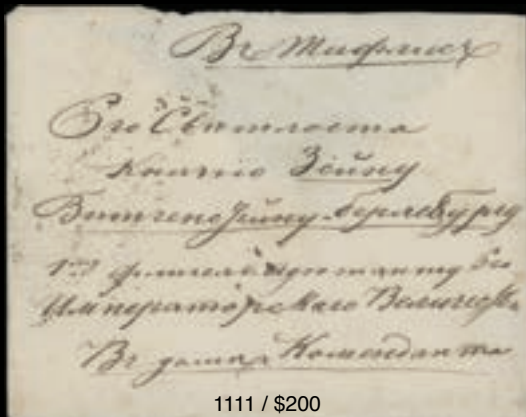 Въ Тифлисъ
Его Светлости
Князю Зейну
Витгенштейну-Берлебургу
адъютанту Его
Императорскаго Величества
Въ домъ Коменданта
1111 / $200